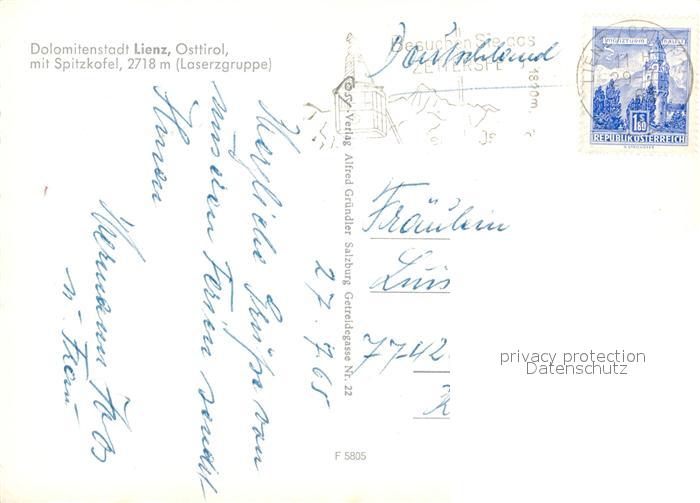 Dolomitenstadt Lienz, Osttirol,
mit Spitzkofel, 2718 m (Laserzgruppe)
Herzliche Grüße von
unseren Ferien sendet
Ihnen
Hermann
u. Frau
27. 7. 65
Verlag Alfred Gründler Salzburg Getreidegasse Nr. 22
F 5805
Besuchen Sie das
1800m
Deutschland
MÜNZTURM HALL I.T.
1.50 S
REPUBLIK ÖSTERREICH
Fräulein
Luis
7742
privacy protection
Datenschutz